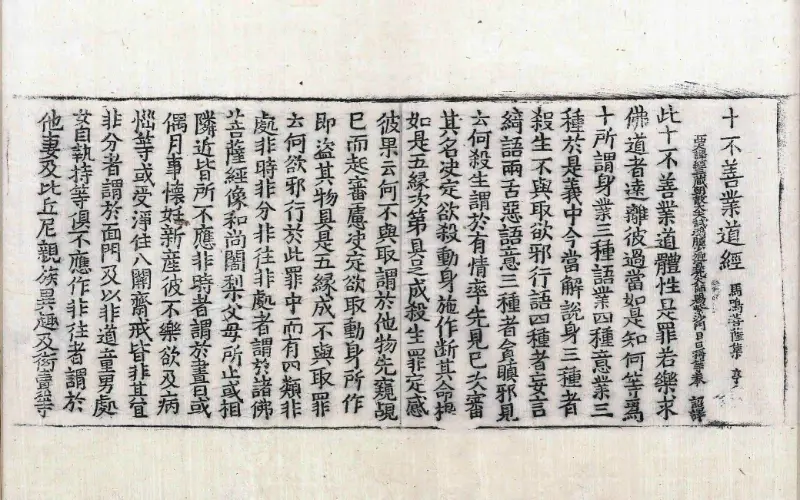 十不善業道經 馬鳴菩薩集
西天譯經三藏朝散大夫試鴻臚少卿宣梵大師賜紫沙門臣日稱等奉 詔譯
此十不善業道體性是罪若樂求
佛道者遠離彼過當如是知何等為
十所謂身業三種語業四種意業三
種於是義中今當解說身三種者
殺生不與取欲邪行語四種者妄言
綺語兩舌惡語意三種者貪瞋邪見
云何殺生謂於有情率先見已次審
其名决定欲殺動身施作斷其命根
如是五緣次第具足成殺生罪定感
彼果云何不與取謂於他物先窺覘
已而起審慮决定欲取動身所作
即盜其物具是五緣成不與取罪
云何欲邪行於此罪中而有四類非
處非時非分非往非處者謂於諸佛
菩薩經像和尚闍梨父母所止或相
隣近皆所不應非時者謂於晝日或
偶月事懷妊新產彼不樂欲及病
惱等或受淨住八關齋戒皆非其宜
非分者謂於面門及以非道童男處
女自執持等俱不應作非往者謂於
他妻及比丘尼親族異趣及衒賣等